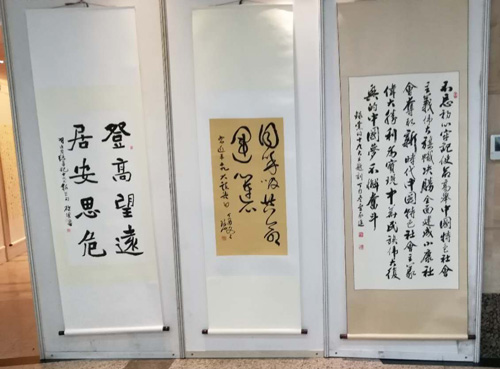 登高望遠
居安思危
同呼吸共命
運
不忘初心牢記使命高舉中國特色社會
主義偉大旗幟決勝全面建成小康社
會奪取新時代中國特色社會主義
偉大勝利為實現中華民族偉大復
興的中國夢不懈奮斗
錄黨的十九大主題